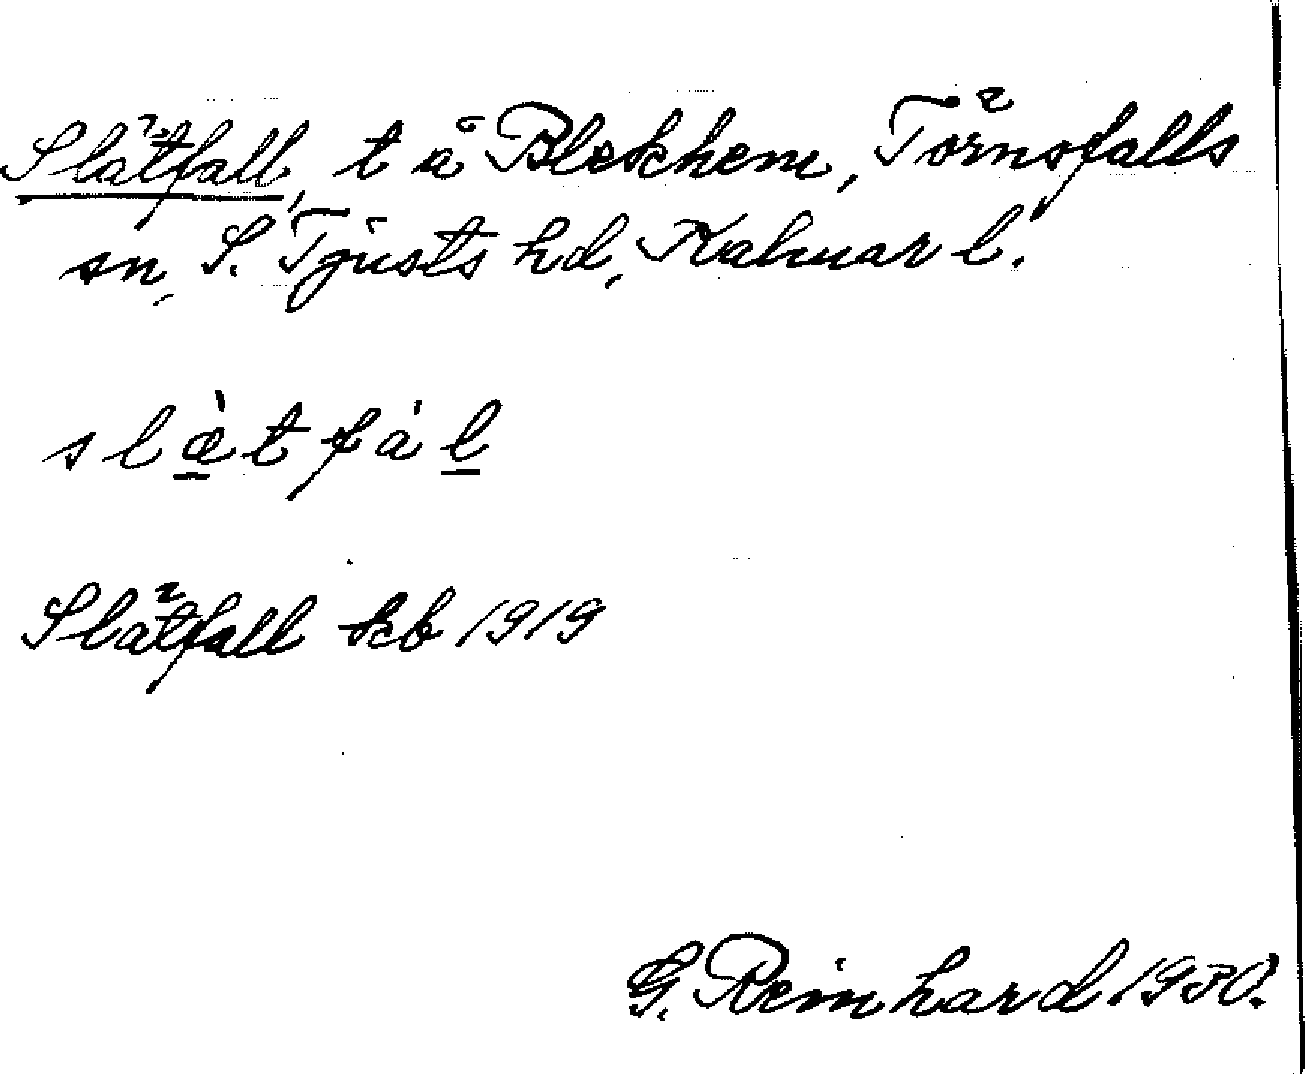 Slätfall, t å Blekhem, Törnsfalls
sn, S. Tjusts hd, Kalmar l.
slæ̀tfál
Slätfall skb 1919
G. Reinhard 1930.